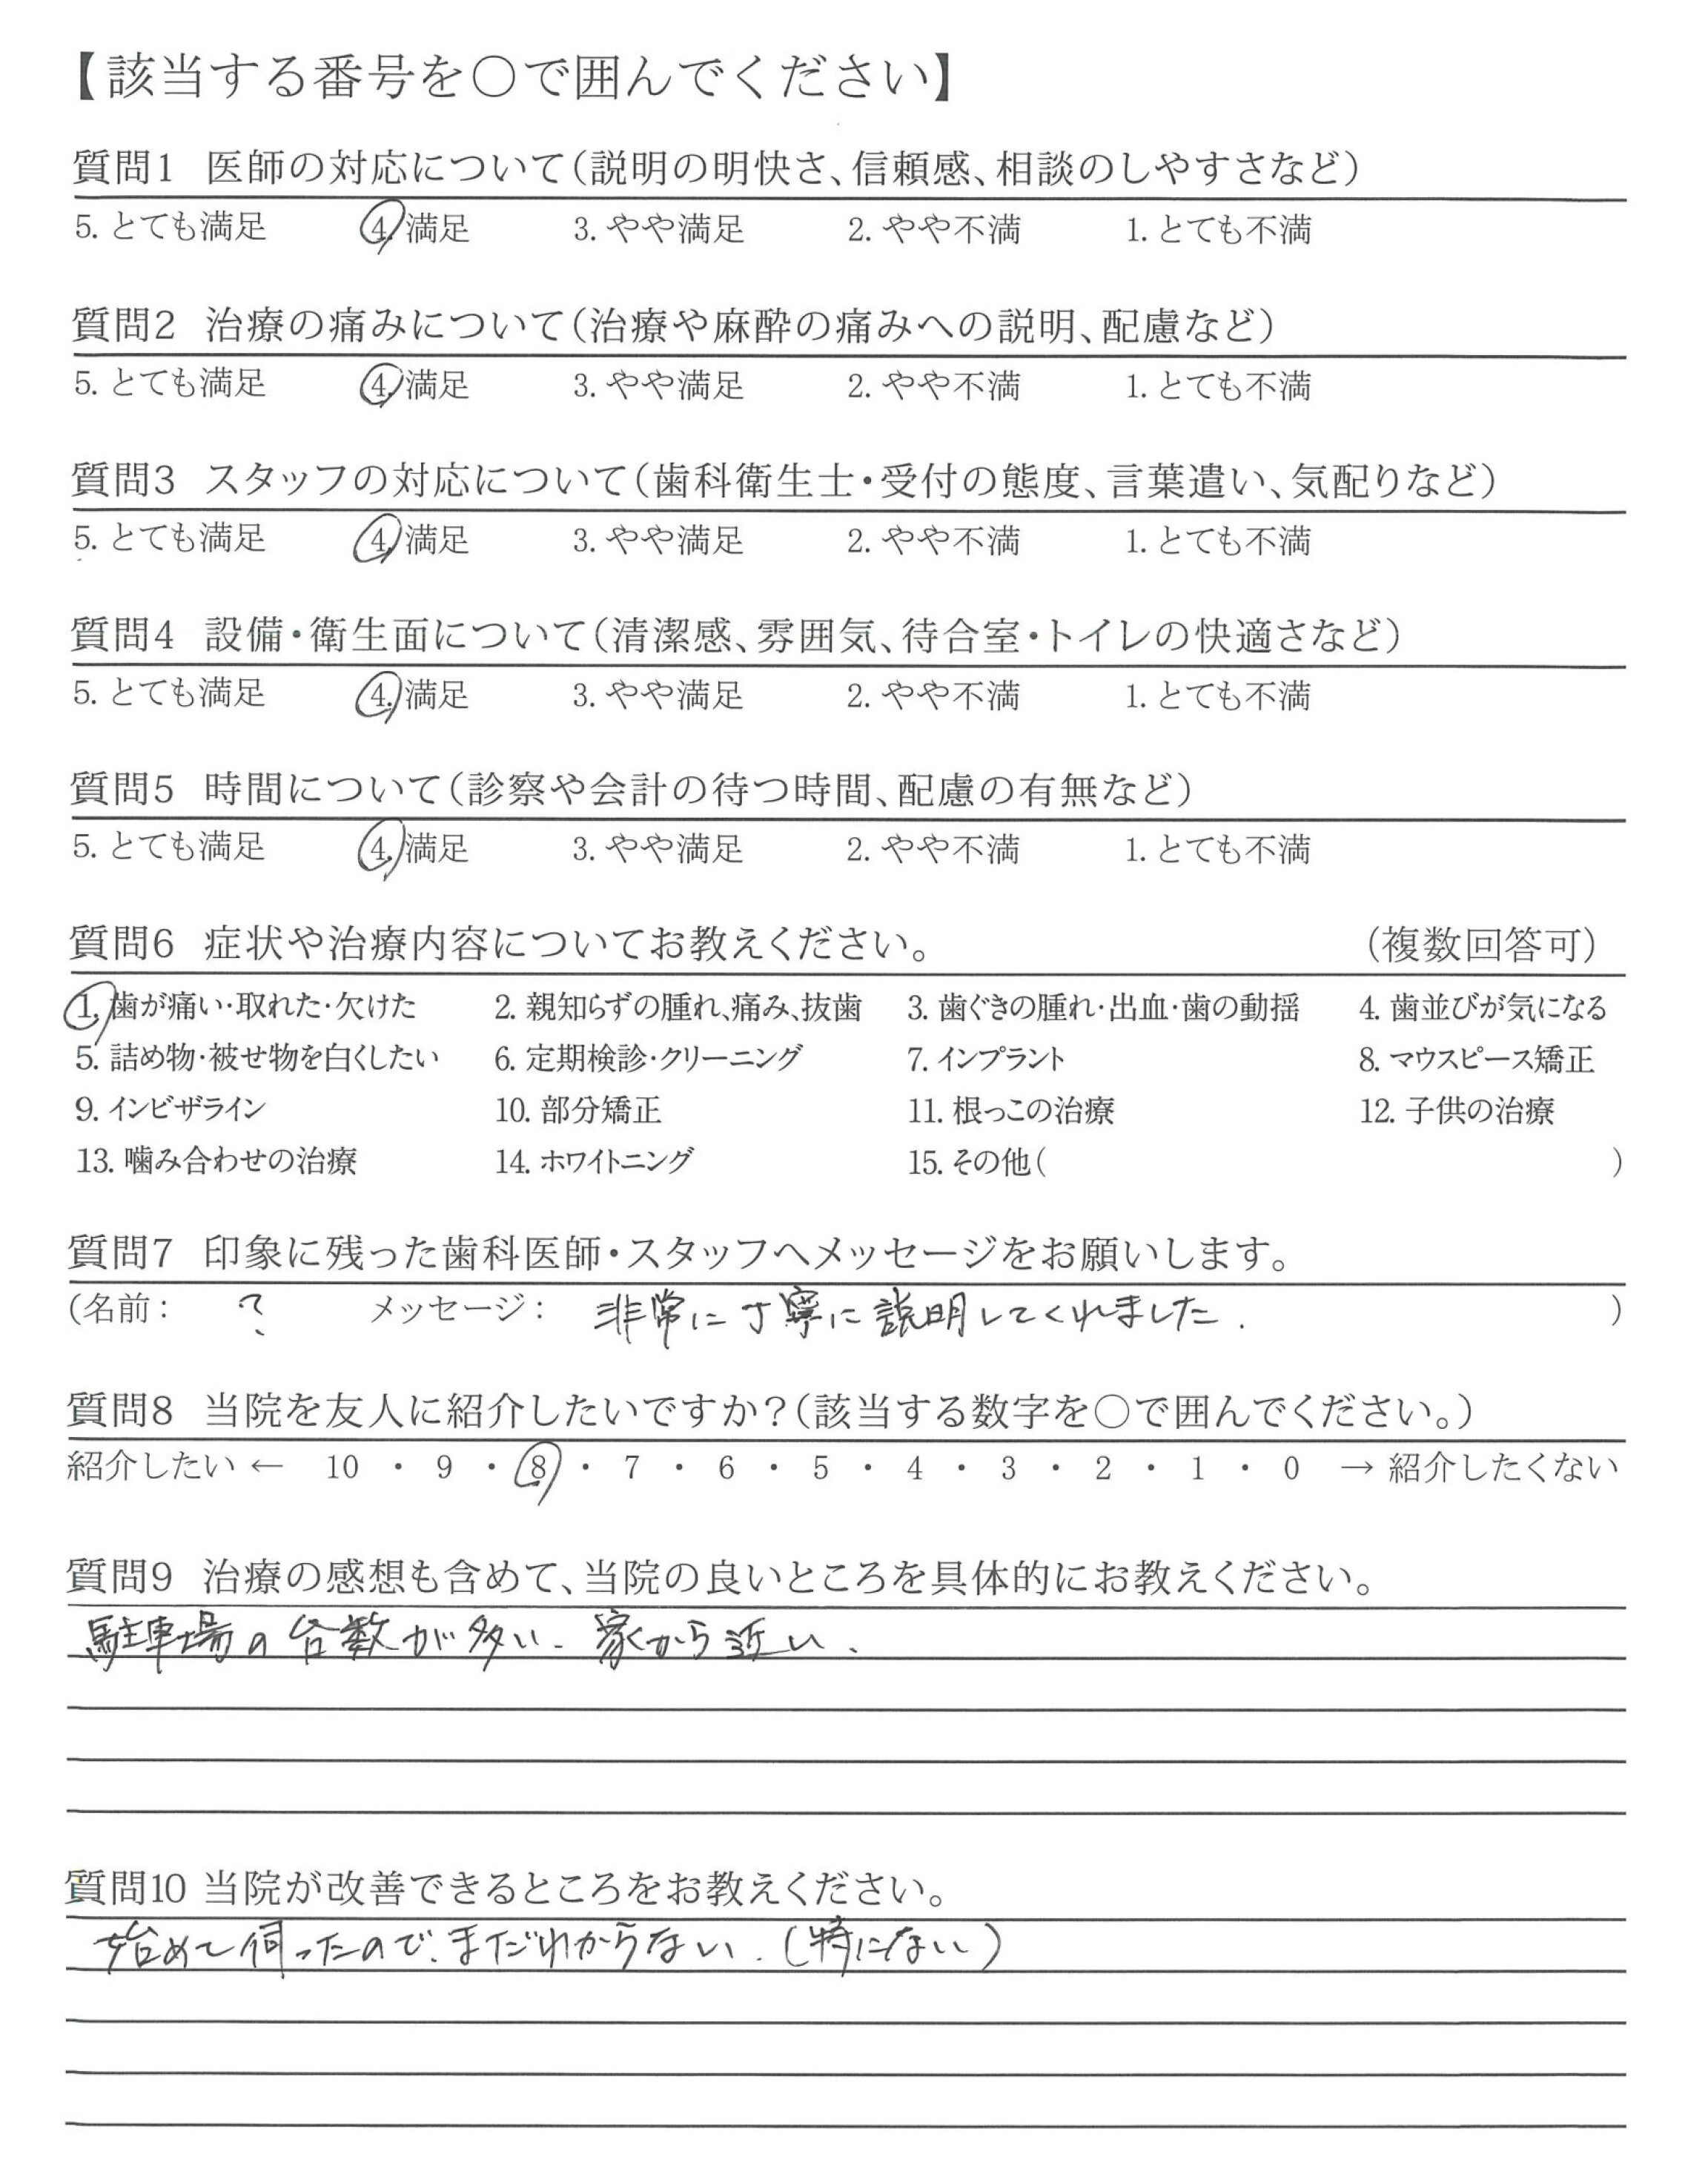 【該当する番号を○で囲んでください】
質問1 医師の対応について(説明の明快さ、信頼感、相談のしやすさなど)
5. とても満足 4. 満足 3. やや満足 2. やや不満 1. とても不満
質問2 治療の痛みについて(治療や麻酔の痛みへの説明、配慮など)
5. とても満足 4. 満足 3. やや満足 2. やや不満 1. とても不満
質問3 スタッフの対応について(歯科衛生士・受付の態度、言葉遣い、気配りなど)
5. とても満足 4. 満足 3. やや満足 2. やや不満 1. とても不満
質問4 設備・衛生面について(清潔感、雰囲気、待合室・トイレの快適さなど)
5. とても満足 4. 満足 3. やや満足 2. やや不満 1. とても不満
質問5 時間について(診察や会計の待つ時間、配慮の有無など)
5. とても満足 4. 満足 3. やや満足 2. やや不満 1. とても不満
質問6 症状や治療内容についてお教えください。 (複数回答可)
1. 歯が痛い・取れた・欠けた 2. 親知らずの腫れ、痛み、抜歯 3. 歯ぐきの腫れ・出血・歯の動揺 4. 歯並びが気になる
5. 詰め物・被せ物を白くしたい 6. 定期検診・クリーニング 7. インプラント 8. マウスピース矯正
9. インビザライン 10. 部分矯正 11. 根っこの治療 12. 子供の治療
13. 噛み合わせの治療 14. ホワイトニング 15. その他( )
質問7 印象に残った歯科医師・スタッフへメッセージをお願いします。
(名前: ? メッセージ: 非常に丁寧に説明してくれました. )
質問8 当院を友人に紹介したいですか?(該当する数字を○で囲んでください。)
紹介したい ← 10 ・ 9 ・ 8 ・ 7 ・ 6 ・ 5 ・ 4 ・ 3 ・ 2 ・ 1 ・ 0 → 紹介したくない
質問9 治療の感想も含めて、当院の良いところを具体的にお教えください。
駐車場の台数が多い. 家から近い.
質問10 当院が改善できるところをお教えください。
始めて伺ったので、まだわからない. (特にない)